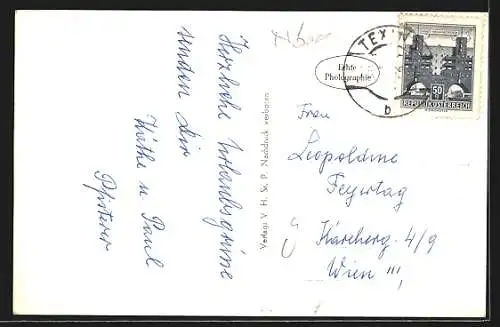 Herzliche Urlaubsgrüsse
senden Dir
Käthe u. Paul
Pfisterer
Verlag: V. H. St. P. Nachdruck verboten
Echte
Photographie
TEX
b
50
REPUBLIK ÖSTERREICH
Frau
Leopoldine
Feyertag
Kärcherg. 4/9
Wien III,